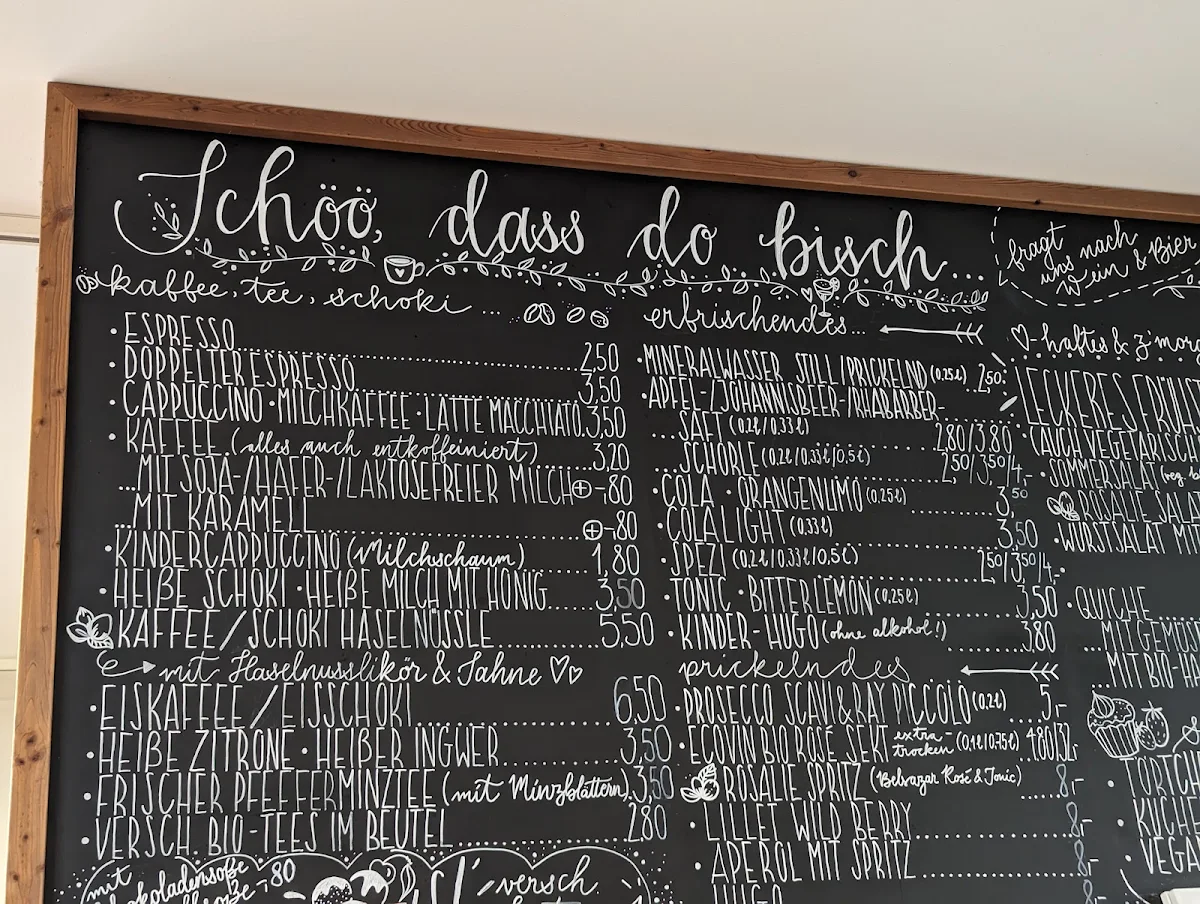 Schöö, dass do bisch...
kaffee, tee, schoki ...
• ESPRESSO...2,50
• DOPPELTER ESPRESSO...3,50
• CAPPUCCINO • MILCHKAFFEE • LATTE MACCHIATO.3,50
• KAFFEE (alles auch entkoffeiniert)...3,20
...MIT SOJA-/HAFER-/LAKTOSEFREIER MILCH⊕-,80
...MIT KARAMELL...⊕-80
• KINDERCAPPUCCINO (Milchschaum)...1,80
• HEIßE SCHOKI • HEIßE MILCH MIT HONIG...3,50
KAFFEE/SCHOKI HASELNÜSSLE...5,50
mit Haselnusslikör & Sahne ♡♡
• EISKAFFEE/EISSCHOKI...6,50
• HEIßE ZITRONE • HEIßER INGWER...3,50
• FRISCHER PFEFFERMINZTEE (mit Minzblättern).3,50
• VERSCH. BIO-TEES IM BEUTEL...2,80
mit
-,80
versch.
erfrischendes...
• MINERALWASSER STILL/PRICKELND (0,25l).2,50
• APFEL-/JOHANNISBEER-/RHABARBER-
...SAFT (0,2l/0,33l)...2,80/3,80
...SCHORLE (0,2l/0,33l/0,5l)...2,50/3,50/4,-
• COLA • ORANGENLIMO (0,25l)...3,50
• COLA LIGHT (0,33l)...3,50
• SPEZI (0,2l/0,33l/0,5l)...2,50/3,50/4,-
• TONIC • BITTER LEMON (0,25l)...3,50
• KINDER-HUGO (ohne alkohol!)...3,80
prickelndes
• PROSECCO SCAVI&RAY PICCOLO (0,2l)...5,-
• ECOVIN BIO ROSÉ SEKT extra-trocken (0,1l/0,75l)..4,80/32,-
ROSALIE SPRITZ (Belsazar Rosé & Tonic)...8,-
• LILLET WILD BERRY...8,-
• APEROL MIT SPRITZ...8,-
HUGO...8,-
fragt nach
uns nach
Wein & Bier
♡-haftes & z'morg
LECKERES FRÜHS
(AUCH VEGETARISCH
SOMMERSALAT
ROSALIE SALA
• WURSTSALAT MIT
• QUICHE...
...MIT GEMÜS
...MIT BIO-HA
• TÖRTCH
• KUCHE
• VEGA